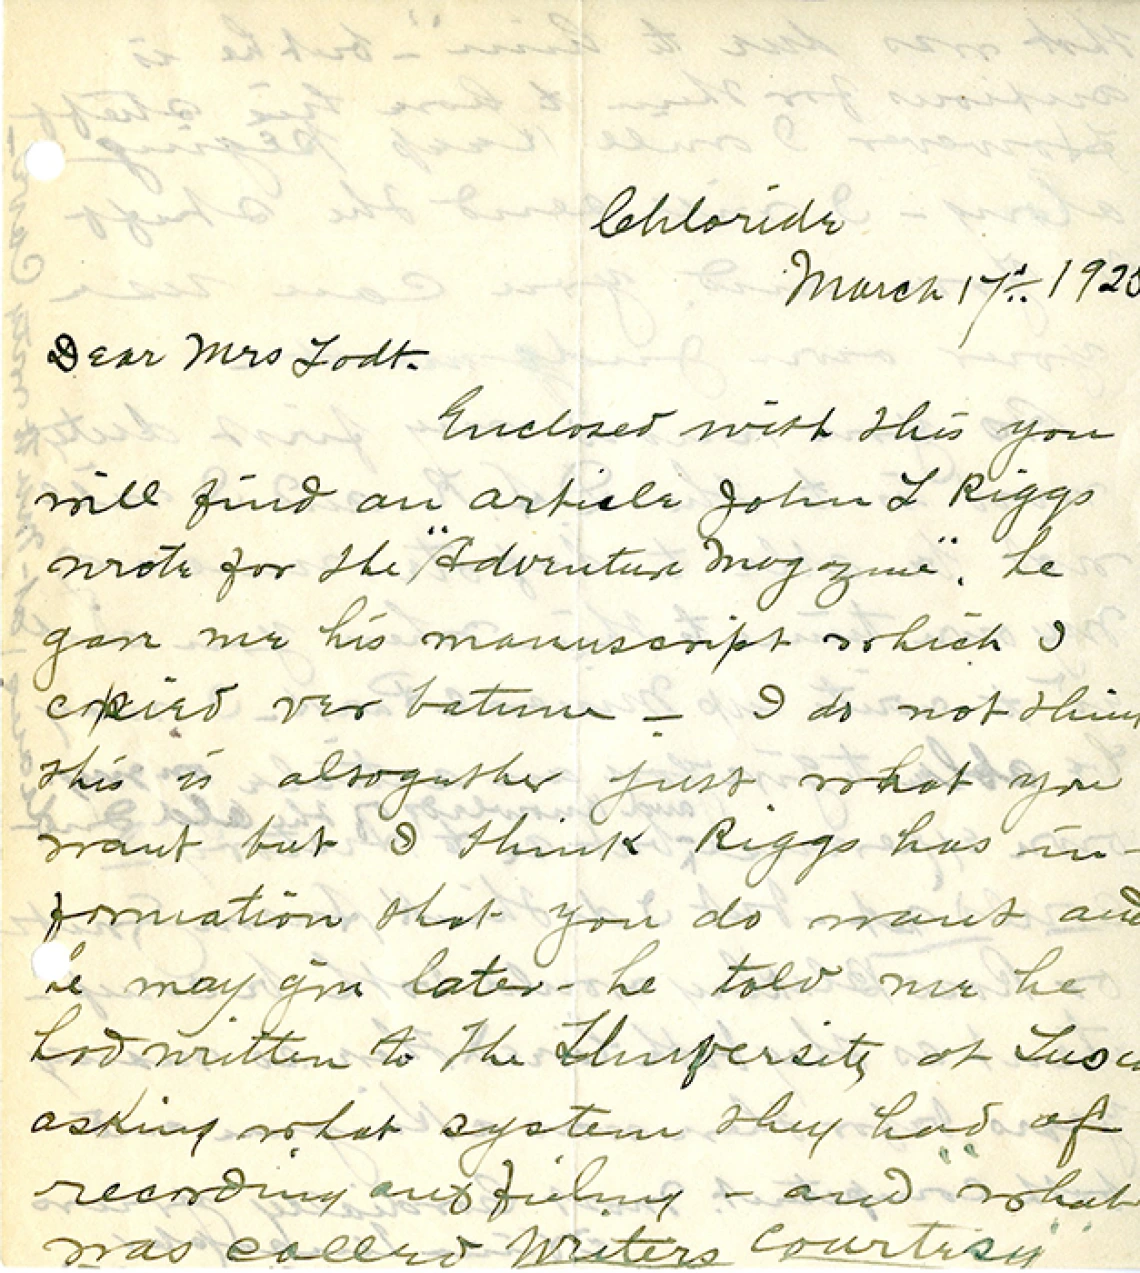 Chloride
March 17th 192
Dear Mrs Lodt.
Enclosed with this you
will find an article John L Riggs
wrote for the "Adventure Magazine". he
gave me his manuscript which I
copied ver batum – I do not think
this is altogather just what you
want but I think Riggs has in-
formation that you do want and
he may give later – he told me he
had written to the University at
asking what system they had of
recording and fieling – and "what
was called Writers Courtesy"